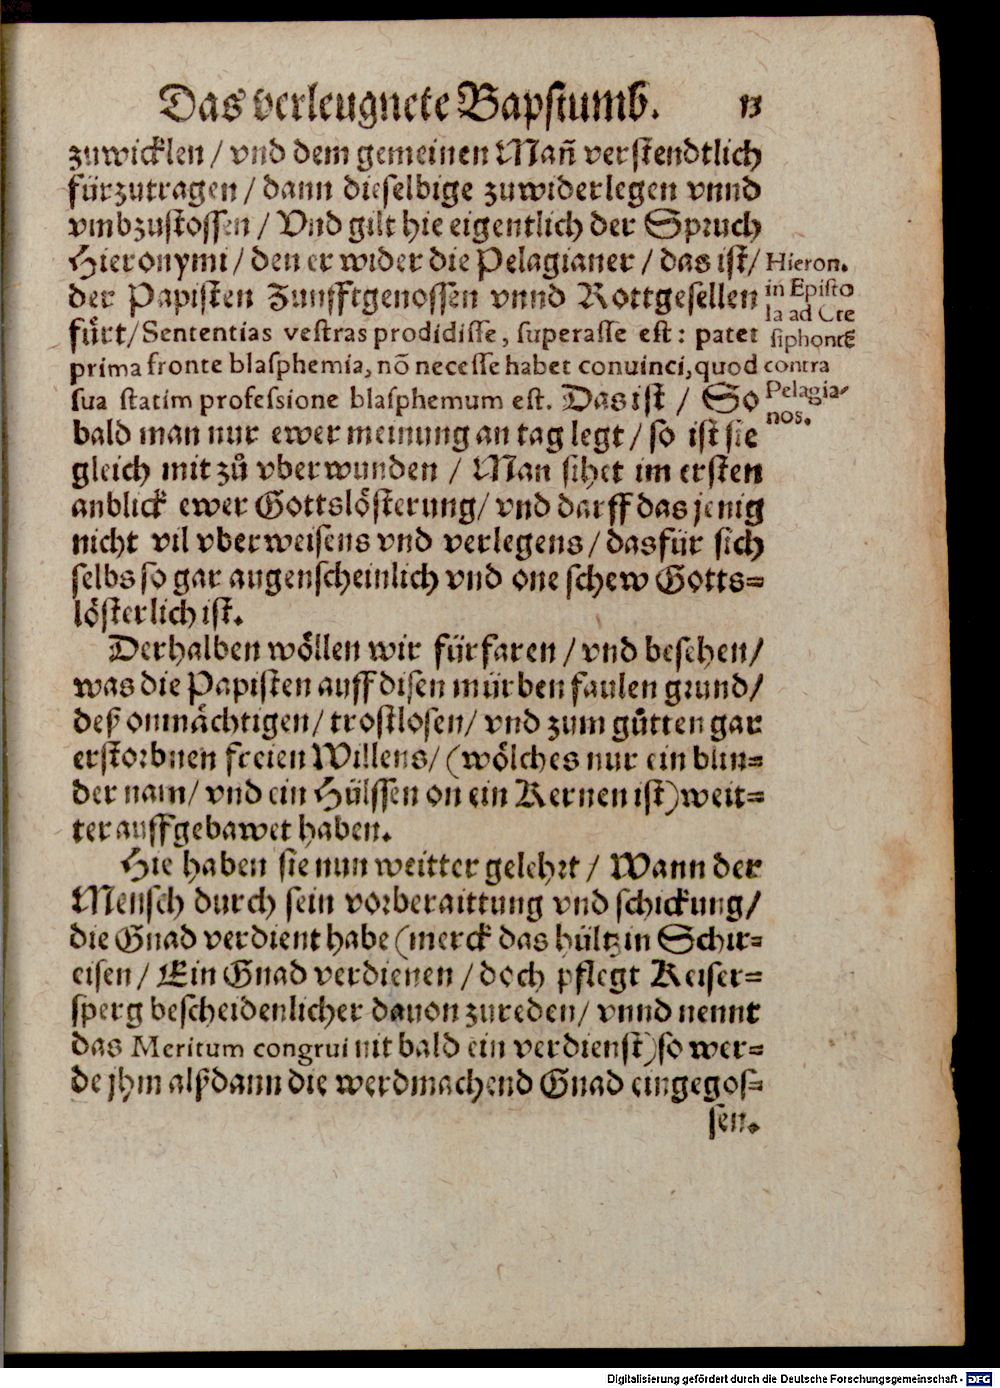 Das verleugnete Bapstumb. 13
zuwicklen / vnd dem gemeinen Mañ verstendtlich
fürzutragen / dann dieselbige zuwiderlegen vnnd
vmbzustossen / Vnd gilt hie eigentlich der Spruch
Hieronymi / den er wider die Pelagianer / das ist /
der Papisten Zunfftgenossen vnnd Rottgesellen
fürt / Sententias vestras prodidisse, superasse est: patet
prima fronte blasphemia, nō necesse habet conuinci, quod
sua statim professione blasphemum est. Das ist / So
bald man nur ewer meinung an tag legt / so ist sie
gleich mit zů vberwunden / Man sihet im ersten
anblick ewer Gottslösterung / vnd darff das jenig
nicht vil vberweisens vnd verlegens / das für sich
selbs so gar augenscheinlich vnd one schew Gotts=
lösterlich ist.
Hieron.
in Episto
la ad Cte
siphontē
contra
Pelagia-
nos.
Derhalben wöllen wir fürfaren / vnd besehen /
was die Papisten auff disen mürben faulen grund /
deß onmächtigen / trostlosen / vnd zum gůtten gar
erstorbnen freien Willens / (wölches nur ein blin=
der nam / vnd ein Hülssen on ein Kernen ist) weit=
ter auffgebawet haben.
Hie haben sie nun weitter gelehrt / Wann der
Mensch durch sein vorberaittung vnd schickung /
die Gnad verdient habe (merck das hültzin Schir=
eisen / Ein Gnad verdienen / doch pflegt Keiser=
sperg bescheidenlicher dauon zureden / vnnd nennt
das Meritum congrui nit bald ein verdienst) so wer=
de jhm alßdann die werdmachend Gnad eingegos=
sen.
Digitalisierung gefördert durch die Deutsche Forschungsgemeinschaft - DFG